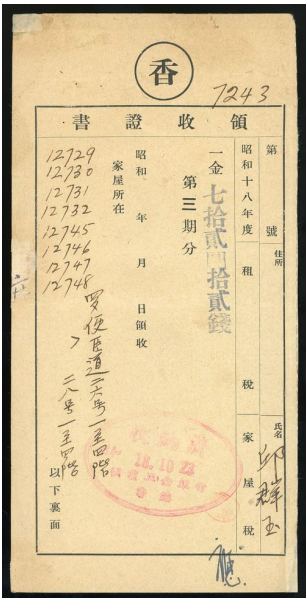 香
7243
領收證書
第 號
昭和十八年度 租 稅 家屋稅
住所
氏名 邱群玉
一金七拾貳圓拾貳錢
第三期分
昭和 年 月 日領收
家屋所在
12729
12730
12731
12732
12745
12746
12747
12748
至四階
二八号一至四階
以下裏面
18.10.23